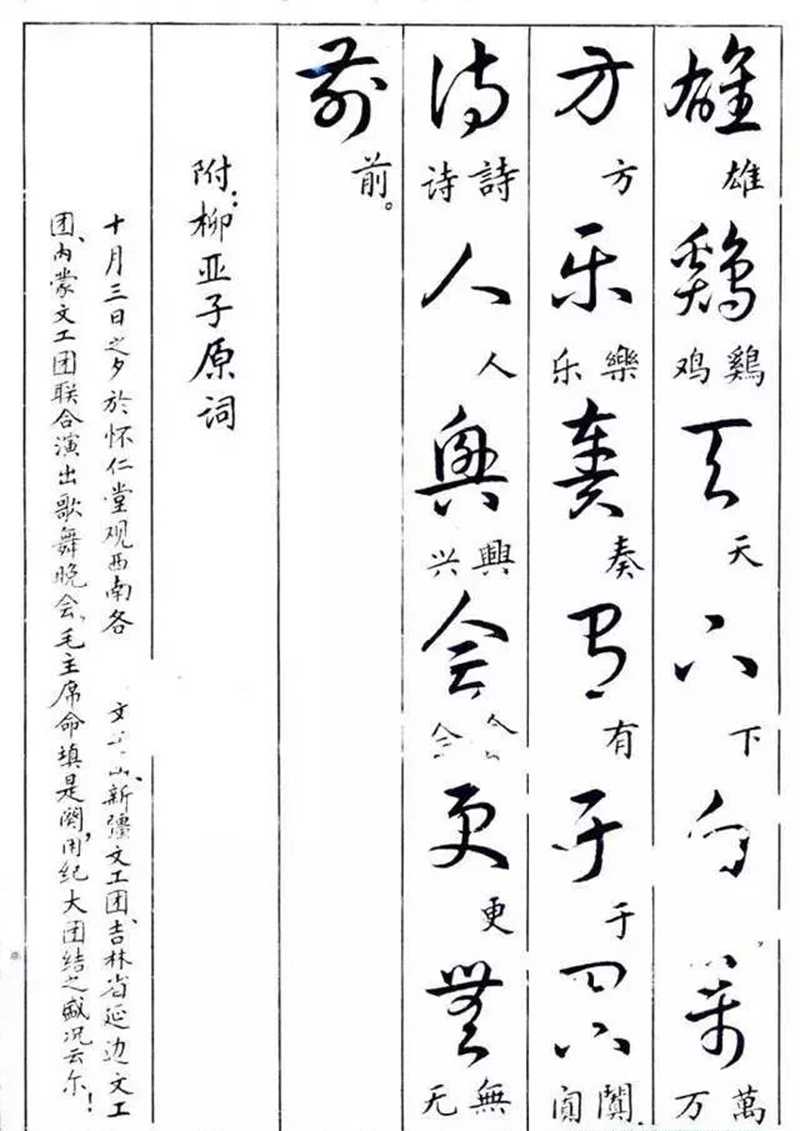 雄 雄 鷄 鷄鸡 天 天 下 下 白 萬 萬万
方 方 乐 樂乐 奏 奏 有 有 于 于 阗 闐阗
诗 詩诗 人 人 興 興兴 会 更 更 無 無无
前 前。
附:柳亚子原词
十月三日之夕於怀仁堂观西南各 文 、新疆文工团、吉林省延边文工
团、内蒙文工团联合演出歌舞晚会、毛主席命填是阕,用纪大团结之盛况云尔!